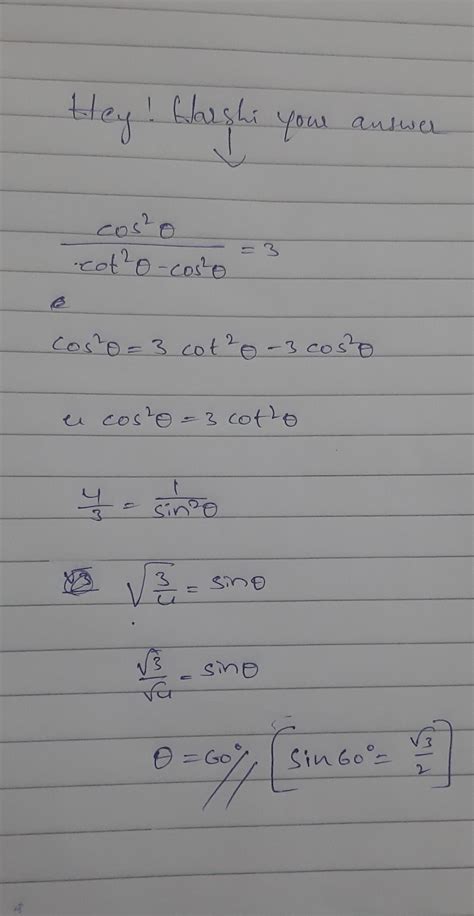 Hey! Harshi your answer
↓
cos²θ / cot²θ - cos²θ = 3
cos²θ = 3 cot²θ - 3 cos²θ
4 cos²θ = 3 cot²θ
4/3 = 1/sin²θ
√3/4 = sinθ
√3/√4 = sinθ
θ = 60° // [sin60° = √3/2]